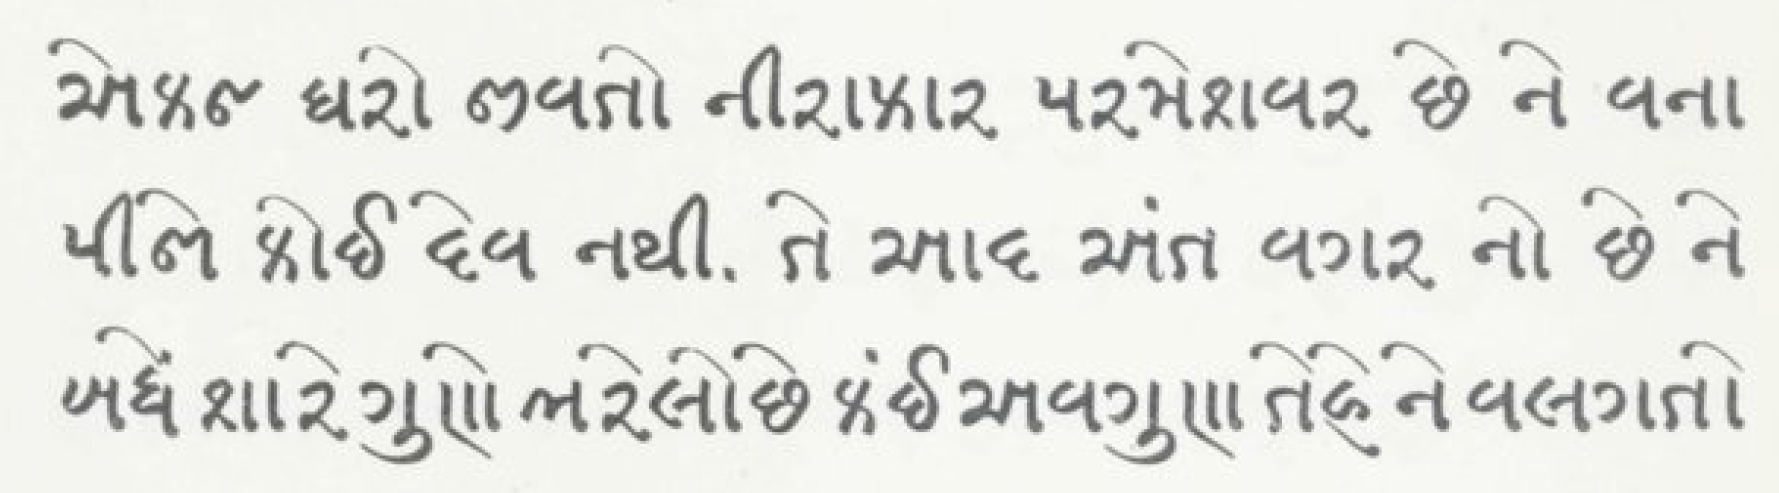 એકજ ઘરો જીવતો નીરાકાર પરમેશવર છે ને વના
પીજે કોઈ દેવ નથી. તે આદ અંત વગર નો છે ને
બધેં શારે ગુણો ભરેલો છે કંઈ અવગુણ તેહેને વલગતો